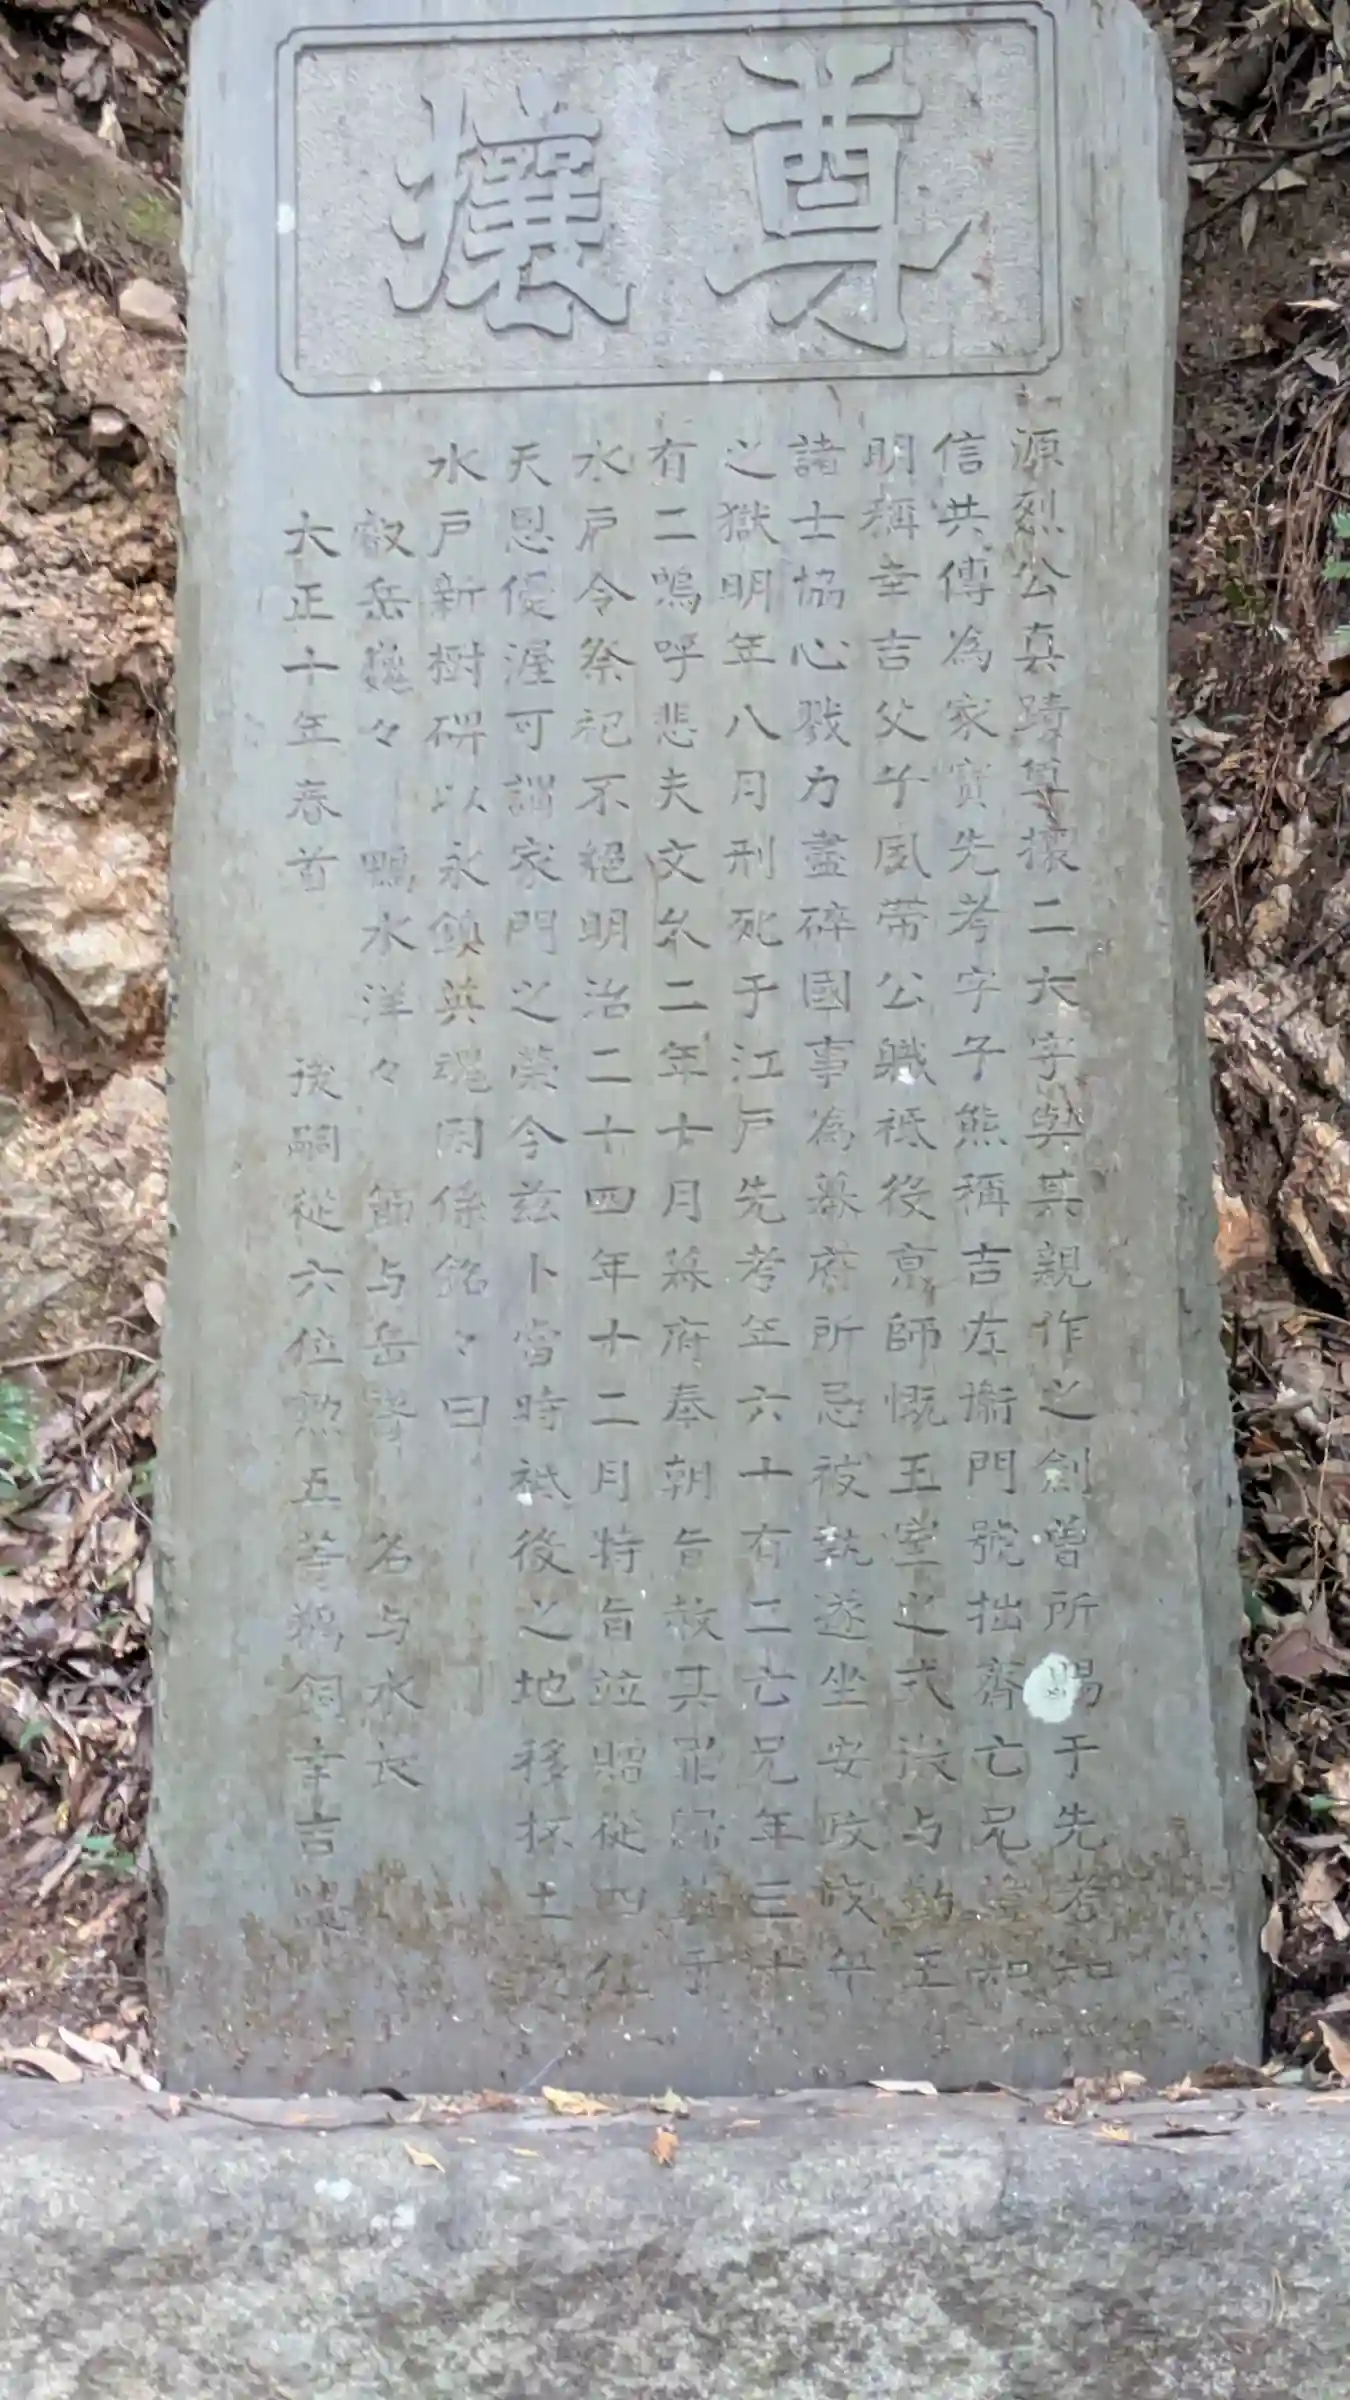 尊攘
源烈公真蹟尊攘二大字與其親作之劍曽所賜于先考知
信共傳為家寳先考字子熊稱吉左衛門號拙齋亡兄知
明稱幸吉父子夙帶公職祗役京師慨王室之式微与勤王
諸士協心戮力盡碎國事為幕府所忌被執遂坐安政戊午
之獄明年八月刑死于江戸先考年六十有二亡兄年三十
有二嗚呼悲夫文久二年十月幕府奉朝旨赦其罪歸葬于
水戸令祭祀不絶明治二十四年十二月特旨竝贈從四位
天恩優渥可謂家門之榮今茲卜當時祗役之地移抔土
水戸新樹碑以永鎮英魂因係銘々曰
叡岳巍々 鴨水洋々 節与岳 名与水长
大正十年春首 後嗣從六位勲五等鵜飼幸吉